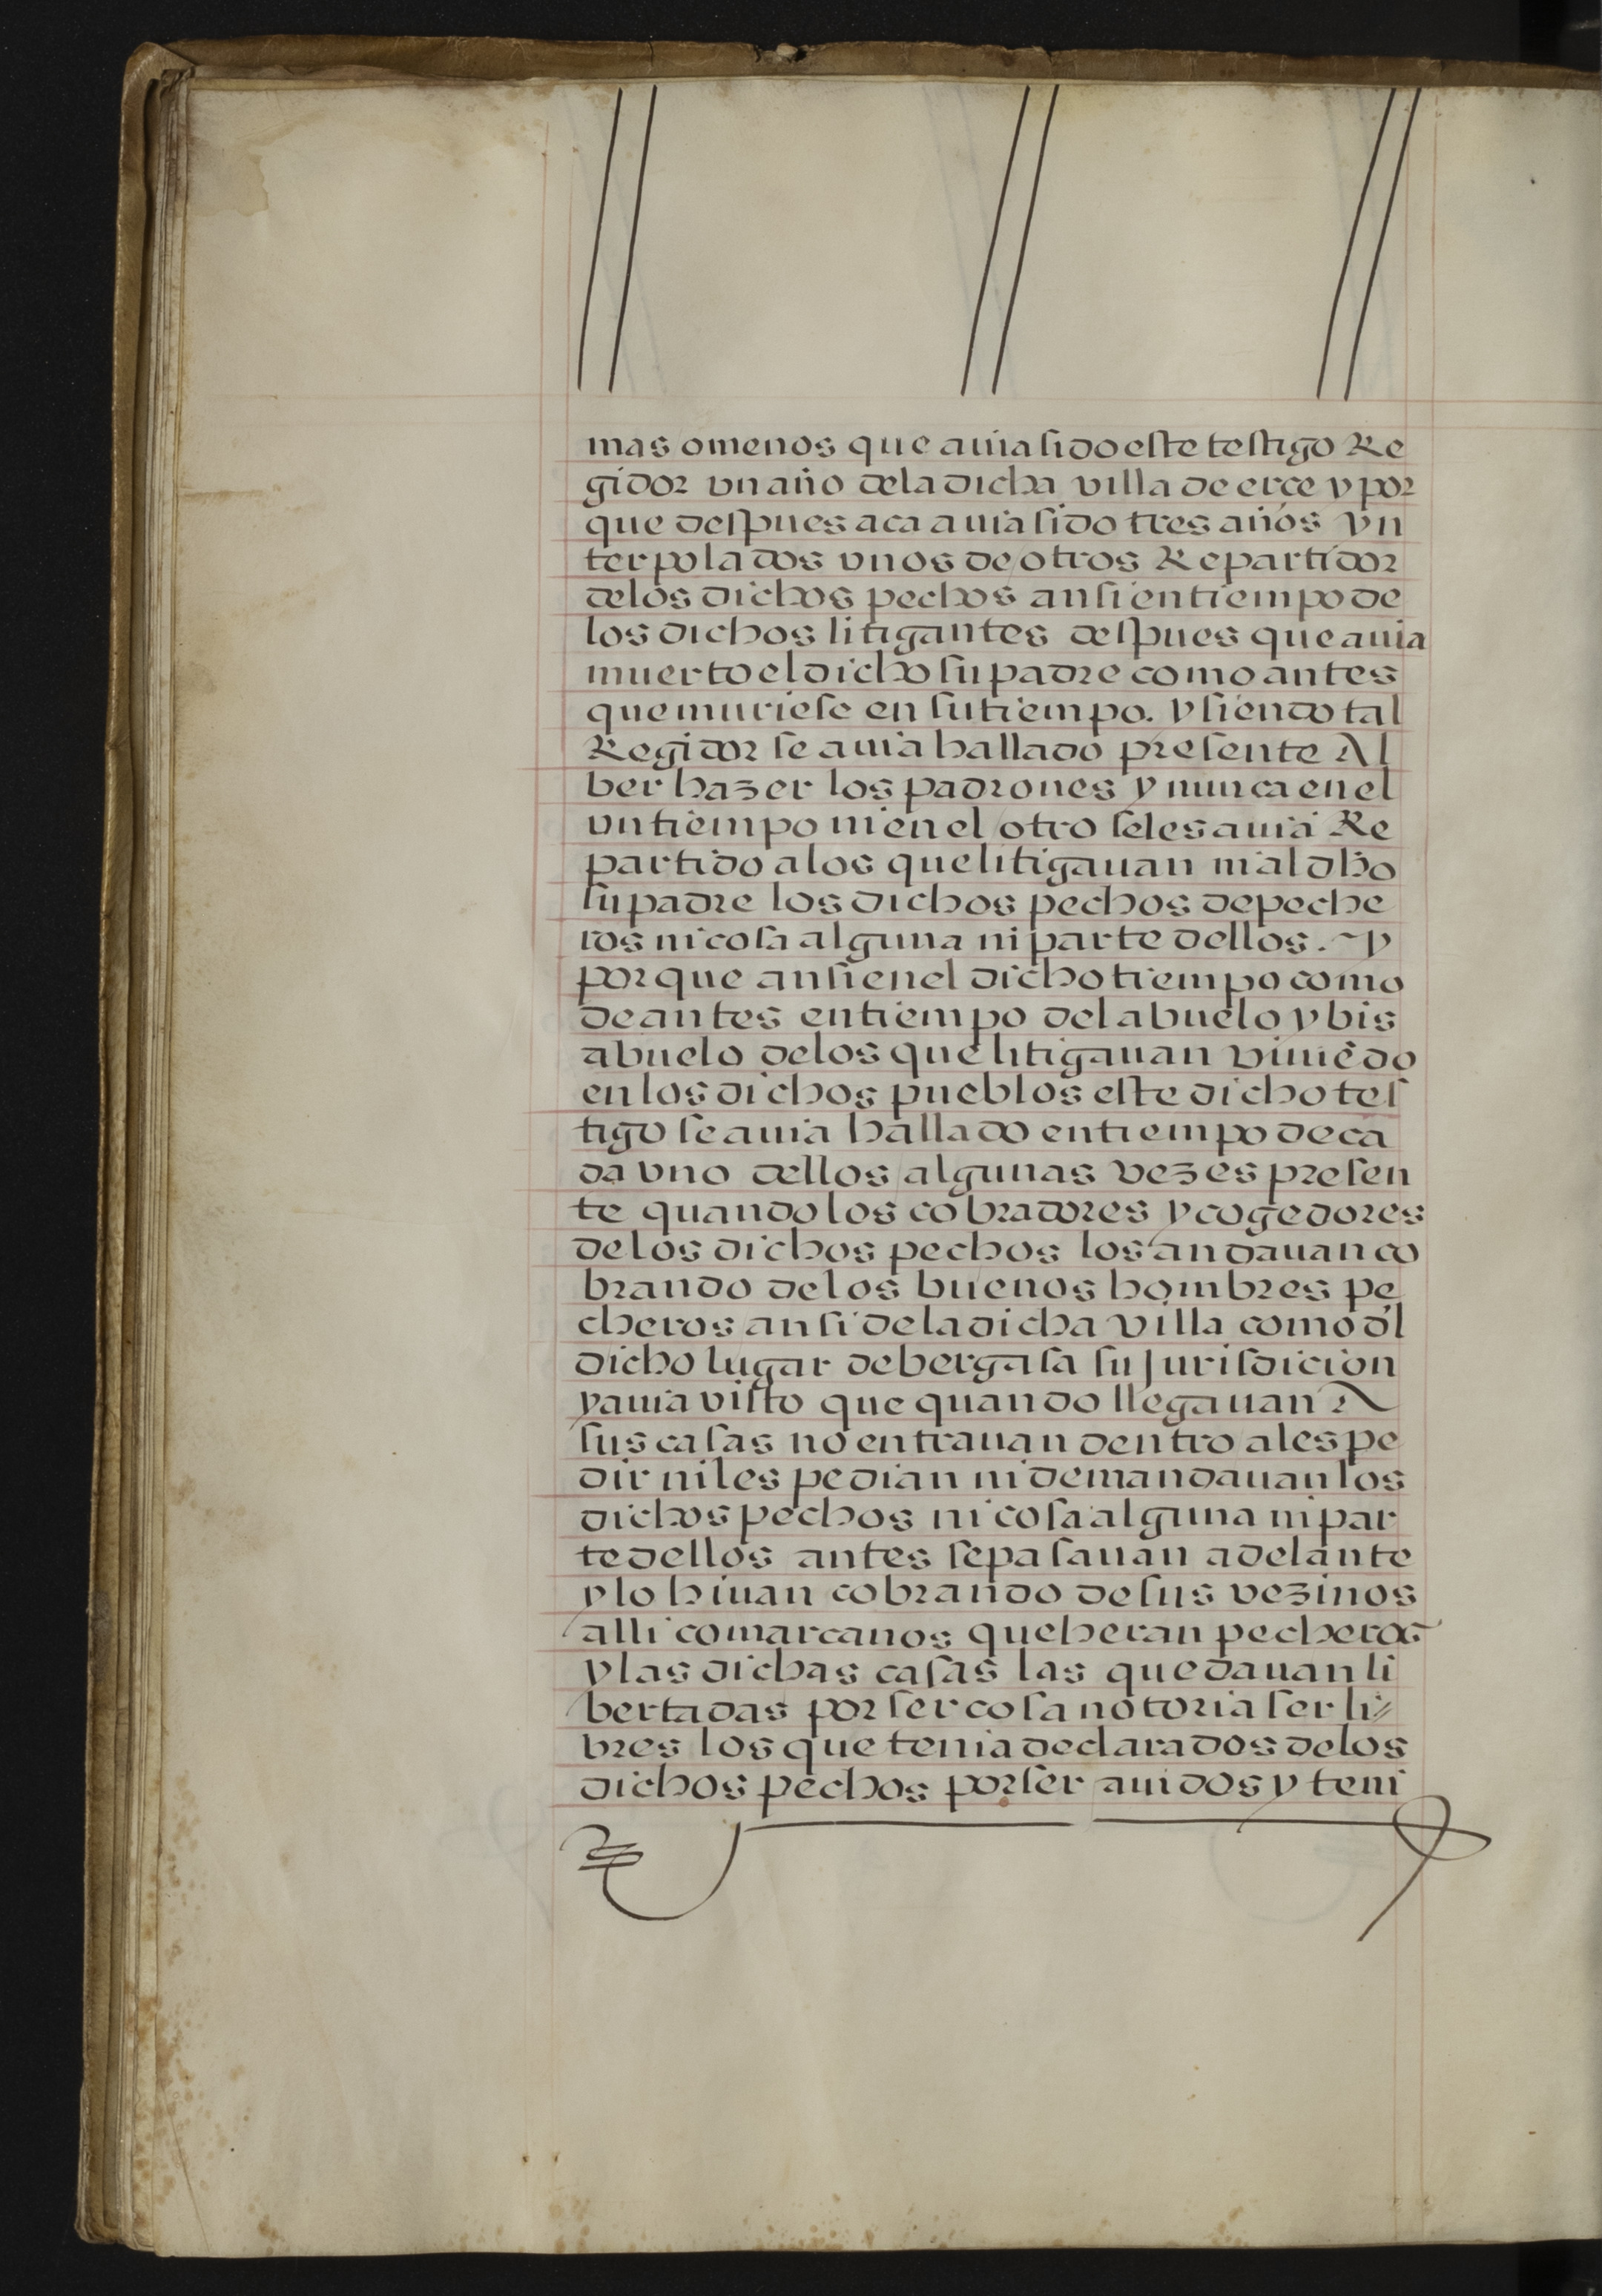 mas o menos que auia sido este testigo Re
gidor vn año dela dicha villa de erçe y por
que despues aca auia sido tres años yn
terpolados vnos de otros Repartidor
delos dichos pechos ansi en tiempo de
los dichos litigantes despues que auia
muerto el dicho su padre como antes
que muriese en su tiempo. y siendo tal
Regidor se auia hallado presente Al
ber hazer los padrones y nunca en el
vn tiempo ni en el otro seles auia Re
partido a los que litigauan ni al dho
su padre los dichos pechos de peche
ros ni cosa alguna ni parte dellos. ~ y
por que ansi en el dicho tiempo como
de antes en tiempo del abuelo y bis
abuelo delos que litigauan viuiēdo
en los dichos pueblos este dicho tes
tigo se auia hallado en tiempo de ca
da vno dellos algunas vezes presen
te quando los cobradores y cogedores
delos dichos pechos los andauan co
brando delos buenos hombres pe
cheros ansi dela dicha villa como dl
dicho lugar de bergasa su Jurisdicion
y auia visto que quando llegauan A
sus casas no entrauan dentro a les pe
dir ni les pedian ni demandauan los
dichos pechos ni cosa alguna ni par
te dellos antes se pasauan adelante
y lo hiuan cobrando de sus vezinos
alli comarcanos que heran pecheros
y las dichas casas las quedauan li
bertadas por ser cosa notoria ser li//
bres los que tenia declarados delos
dichos pechos por ser auidos y teni